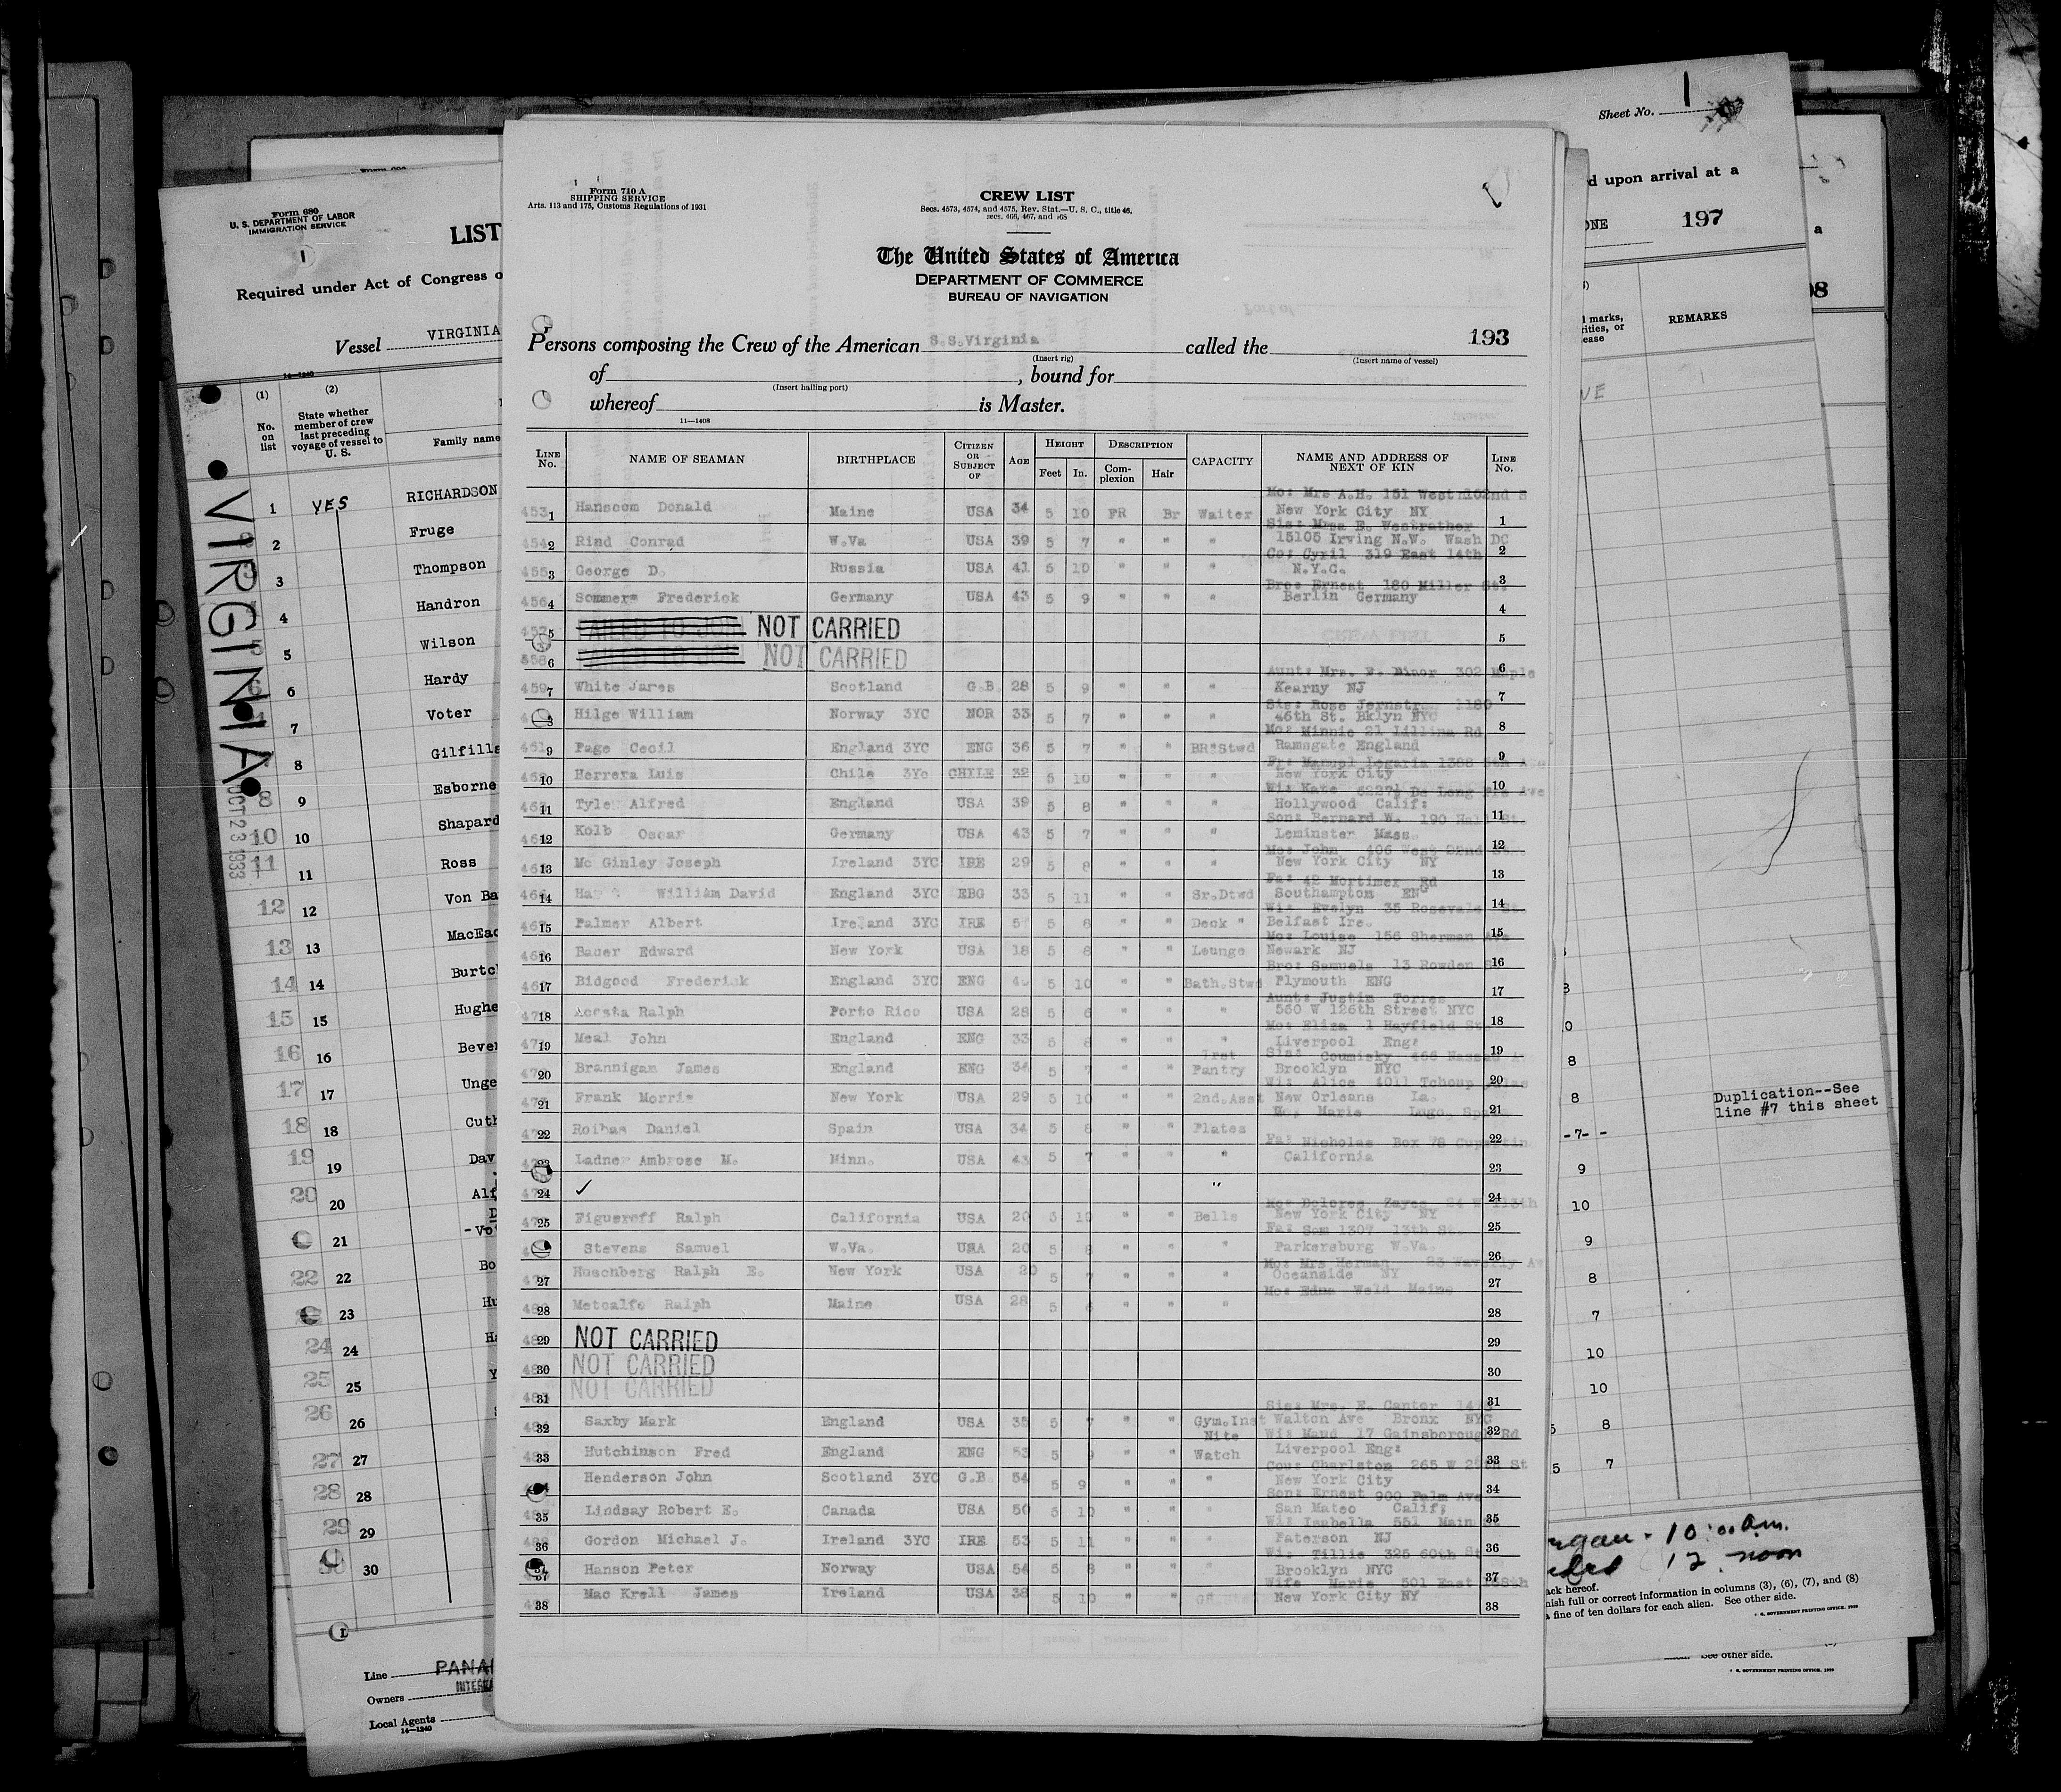 Form 680
U. S. DEPARTMENT OF LABOR
IMMIGRATION SERVICE
LIST
Required under Act of Congress o
Vessel VIRGINIA
14—1240
(1) (2)
No. on list
State whether member of crew last preceding voyage of vessel to U. S.
Family name
1 YES RICHARDSON
2 Fruge
3 Thompson
4 Handron
5 Wilson
6 Hardy
7 Voter
8 Gilfills
8 9 Esborne
10 10 Shapard
11 11 Ross
12 12 Von Ba
13 13 MacEac
14 14 Burtc
15 15 Hughe
16 16 Bever
17 17 Unge
18 18 Cuth
19 19 Dav
20 20 Alf
21 -Vo
22 22 Bo
23 Hu
24 24 Ha
25 25 Y
26 26
27 27
28 28
29 29
30
VIRGINIA
OCT 23 1933
Line PANA
Owners INTER
Local Agents
14—1240
Form 710 A
SHIPPING SERVICE
Arts. 113 and 175, Customs Regulations of 1931
CREW LIST
Secs. 4573, 4574, and 4575, Rev. Stat.—U. S. C., title 46,
secs. 466, 467, and 468
The United States of America
DEPARTMENT OF COMMERCE
BUREAU OF NAVIGATION
193
Persons composing the Crew of the American S.S.Virginia called the
(Insert rig) (Insert name of vessel)
of , bound for
(Insert hailing port)
whereof is Master.
11—1408
LINE No. NAME OF SEAMAN BIRTHPLACE CITIZEN OR SUBJECT OF AGE HEIGHT Feet In. DESCRIPTION Complexion Hair CAPACITY NAME AND ADDRESS OF NEXT OF KIN LINE No.
Mo: Mrs A.H. 151 West 102nd S
453 1 Hanscom Donald Maine USA 34 5 10 FR Br Waiter New York City NY 1
Sis: Mrs E. Westrather
454 2 Rind Conrad W.Va USA 39 5 7 " " " 15105 Irving N.W. Wash DC 2
Co: Cyril 319 East 14th
455 3 George D. Russia USA 41 5 10 " " " N.Y.C. 3
Bro: Ernest 180 Miller St.
456 4 Sommers Frederick Germany USA 43 5 9 " " " Berlin Germany 4
5 FAILED TO JOIN NOT CARRIED 5
6 FAILED TO JOIN NOT CARRIED 6
Aunt: Mrs. F. Minor 302 Maple
459 7 White James Scotland G.B. 28 5 9 " " " Kearny NJ 7
Sis: Rose Jernstr 1180
Hilge William Norway 3YC NOR 33 5 7 " " " 46th St. Bklyn NYC 8
Mo: Minnie 21 Lillina Rd
461 9 Page Cecil England 3YC ENG 36 5 7 " " BR"Stwd Ramsgate England 9
10 Herrera Luis Chile 3Yc CHILE 32 5 10 " " " New York City 10
Wi: Kate 6227½ De Long Ave
11 Tyle Alfred England USA 39 5 8 " " " Hollywood Calif: 11
Son: Bernard W. 190 Hall St.
12 Kolb Oscar Germany USA 43 5 7 " " " Leminster Mass. 12
Mo: John 406 West 22nd St.
13 Mc Ginley Joseph Ireland 3YC IRE 29 5 8 " " " New York City NY 13
Fa: 42 Mortimer Rd
14 William David England 3YC EBG 33 5 11 " " Sr.Dtwd Southampton ENG 14
Wi: Evelyn 35 Rosevale St.
15 Palmer Albert Ireland 3YC IRE 5 8 " " Deck " Belfast Ire. 15
Mo: Louise 156 Sherman Ave
16 Bauer Edward New York USA 18 5 8 " " Lounge Newark NJ 16
Bro: Samuels 13 Rowden S
17 Bidgood Frederick England 3YC ENG 5 10 " " Bath.Stwd Plymouth ENG 17
Aunt: Justin Torres
18 Acosta Ralph Porto Rico USA 28 5 6 " " " 560 W 126th Street NYC 18
Mo: Eliza 1 Hayfield St
19 Meal John England ENG 33 5 8 " " " Liverpool Eng: 19
Sis: Coumisky 466 Nassau A
20 Brannigan James England ENG 34 5 7 " " 1rst Pantry Brooklyn NYC 20
Wi: Alice 4011 Tchoup
21 Frank Morris New York USA 29 5 10 " " 2nd.Asst New Orleans La. 21
Marie Lugo, Spain
22 Roibas Daniel Spain USA 34 5 8 " " Plates 22
Fa: Nicholas Box 78
23 Ladner Ambrose M. Minn. USA 43 5 7 " " " California 23
24 ✓ " 24
Mo: Dolores Zayes 24 W 113th
25 Figueroff Ralph California USA 20 5 10 " " Bells New York City NY 25
Fa: Sam 1307 13th St.
Stevens Samuel W.Va. USA 20 5 8 " " " Parkersburg W.Va. 26
Mo: Mrs Herman 23 Waverly Av
27 Huschberg Ralph E. New York USA 20 5 7 " " " Oceanside NY 27
Mo: Edna Weld Maine
28 Metcalfe Ralph Maine USA 28 5 6 " " " 28
29 NOT CARRIED 29
30 NOT CARRIED 30
31 NOT CARRIED 31
Sis: Mrs. E. Cantor 14
32 Saxby Mark England USA 35 5 7 " " Gym.Inst Walton Ave Bronx NYC 32
Wi: Maud 17 Gainsborough Rd
33 Hutchinson Fred England ENG 53 5 9 " " Nite Watch Liverpool Eng: 33
Cou: Charlston 265 W 25th St
Henderson John Scotland 3YC G.B. 54 5 9 " " " New York City 34
Son: Ernest 900 Palm Ave
35 Lindsay Robert E. Canada USA 50 5 10 " " " San Mateo Calif; 35
Wi: Isabella 551 Main
36 Gordon Michael J. Ireland 3YC IRE 53 5 11 " " " Paterson NJ 36
Wi: Tillie 325 60th St
37 Hanson Peter Norway USA 54 5 8 " " Brooklyn NYC 37
Wife Marie 501 East 168th
38 Mac Krell James Ireland USA 38 5 10 " " New York City NY 38
Sheet No. 1
d upon arrival at a
197
REMARKS
Duplication--See
line #7 this sheet
8
8
-7- -
9
10
9
8
7
10
10
8
7
10:00 a.m.
12 noon
ack hereof.
nish full or correct information in columns (3), (6), (7), and (8)
a fine of ten dollars for each alien. See other side.
See other side.